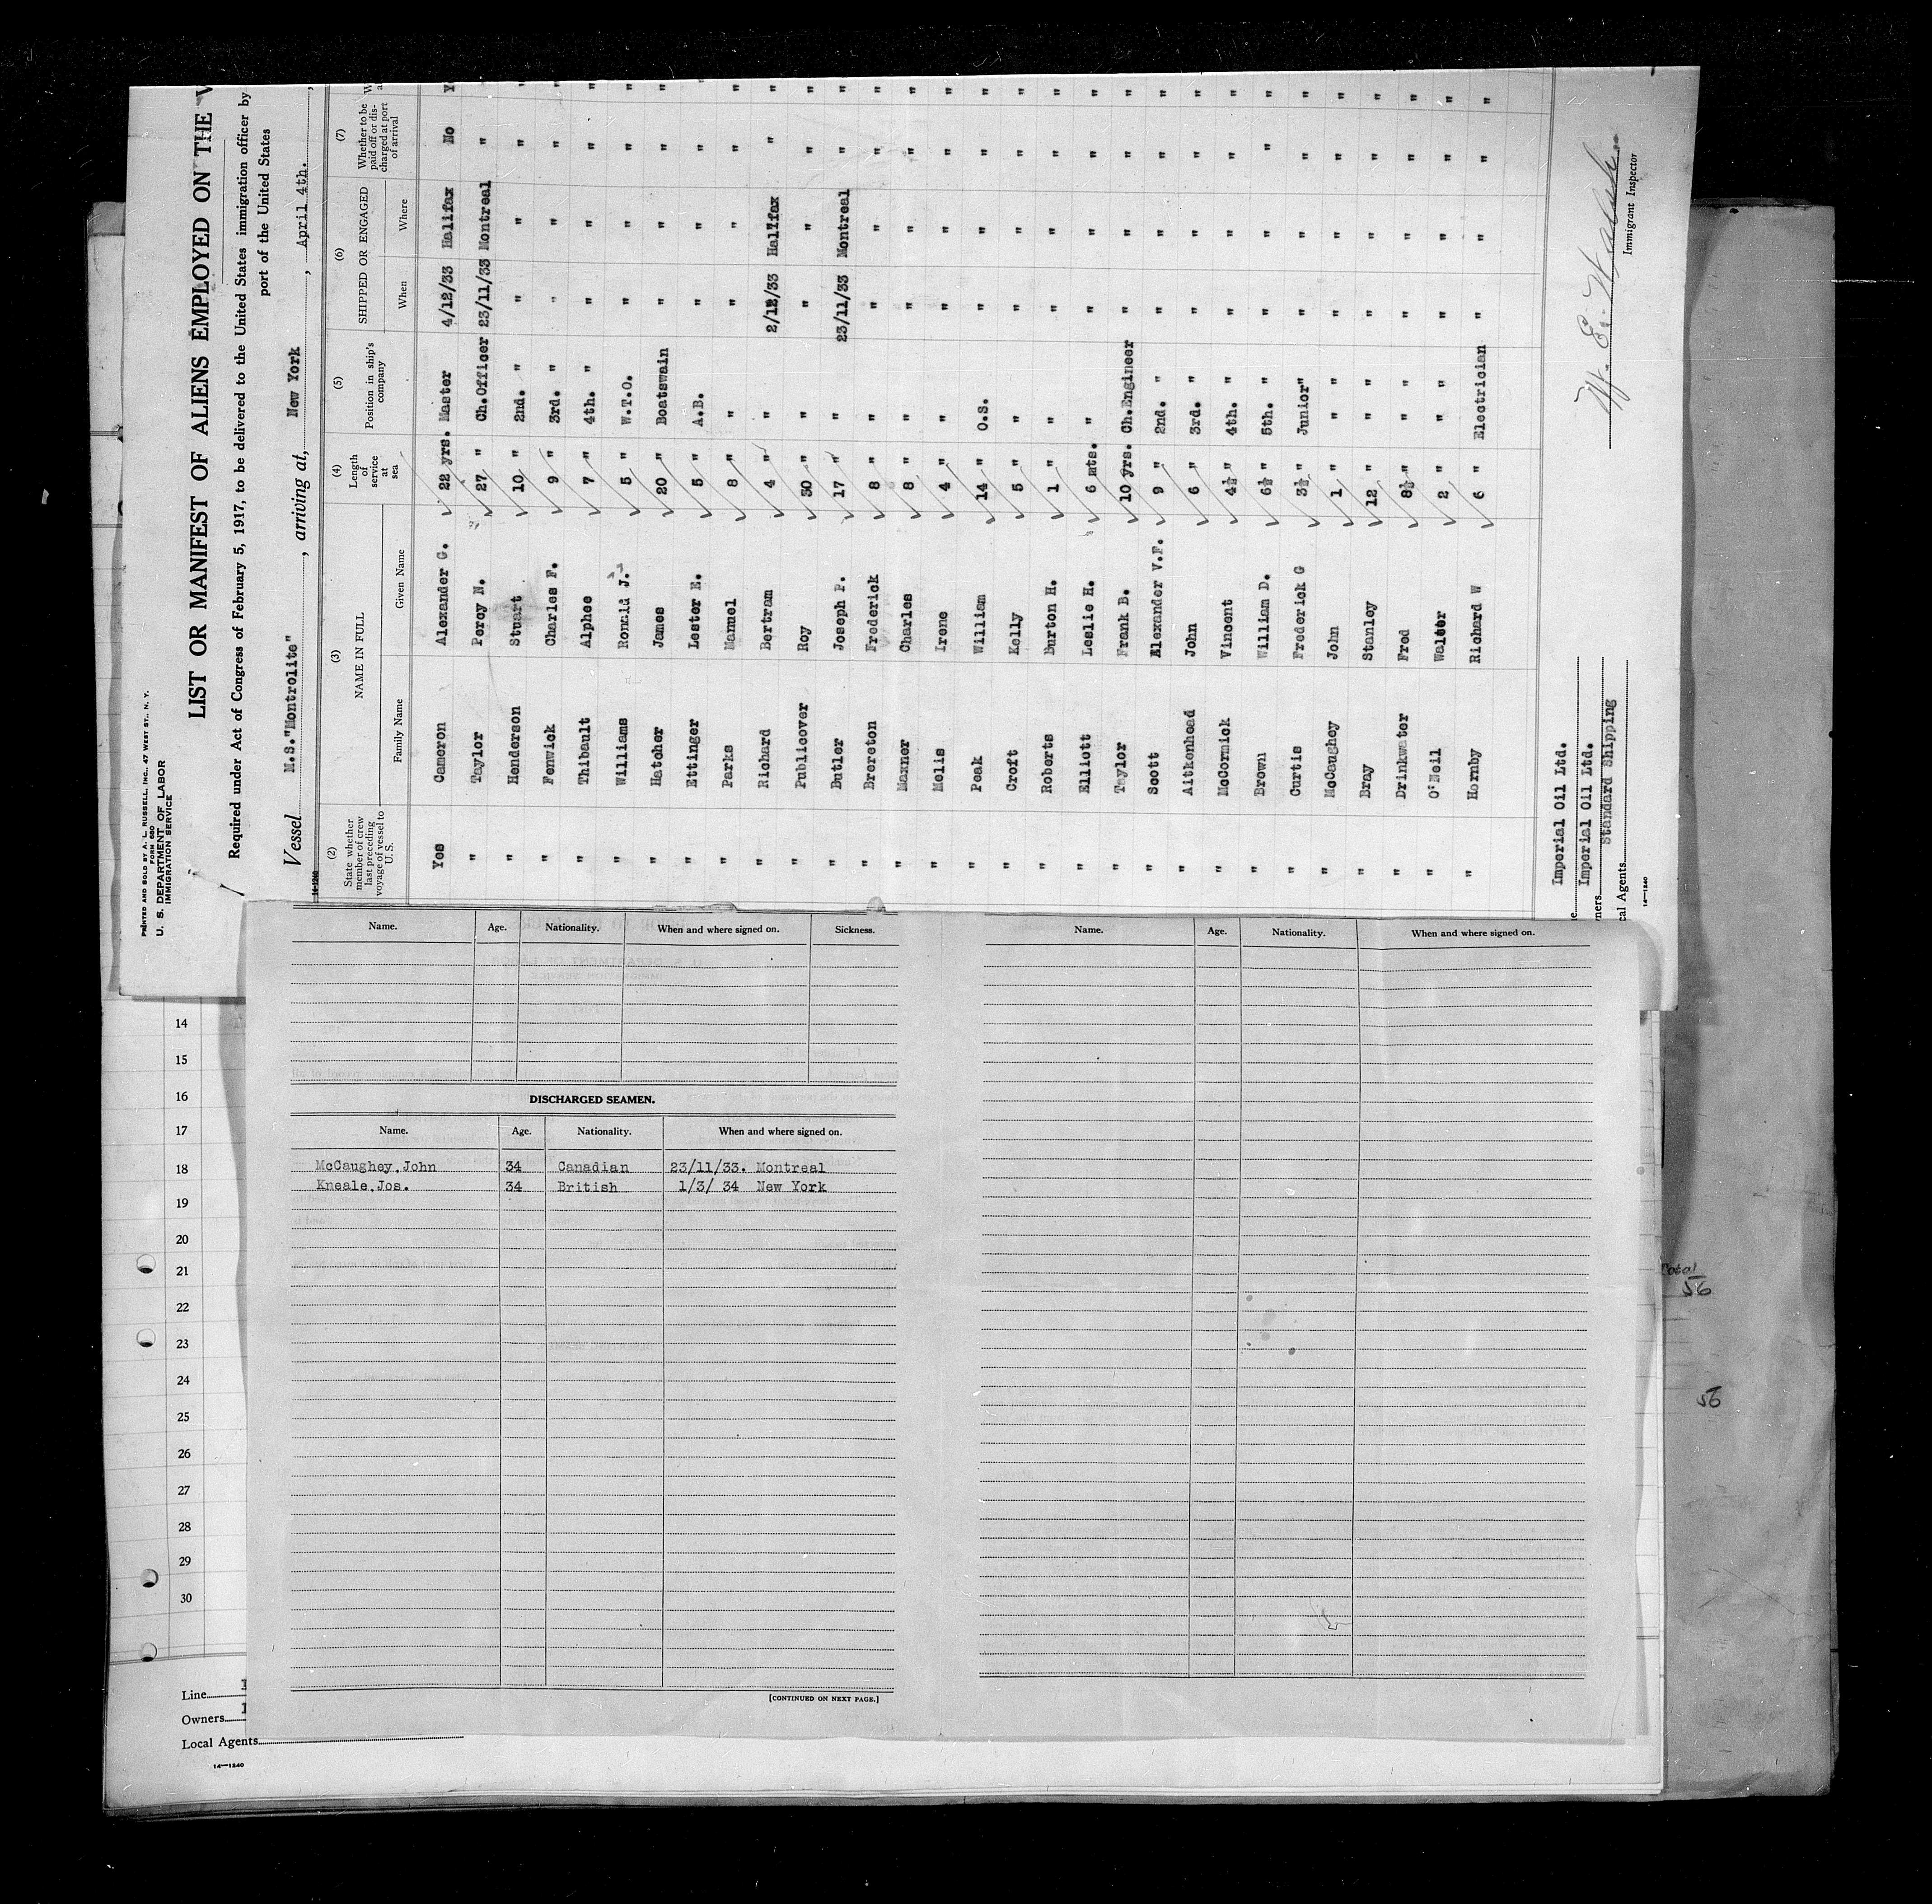 PRINTED AND SOLD BY A. L. RUSSELL, INC., 47 WEST ST., N. Y.
FORM 680
U. S. DEPARTMENT OF LABOR
IMMIGRATION SERVICE
LIST OR MANIFEST OF ALIENS EMPLOYED ON THE V
Required under Act of Congress of February 5, 1917, to be delivered to the United States immigration officer by
port of the United States
Vessel M.S."Montrolite", arriving at, New York, April 4th.,
14-1240
(2) (3) (4) (5) (6) (7)
State whether member of crew last preceding voyage of vessel to U.S. NAME IN FULL Length of service at sea Position in ship's company SHIPPED OR ENGAGED Whether to be paid off or discharged at port of arrival
Family Name Given Name When Where
Yes Cameron Alexander G. 22 yrs. Master 4/12/33 Halifax No Y
" Taylor Percy N. 27 " Ch.Officer 23/11/33 Montreal " "
" Henderson Stuart 10 " 2nd. " " " " "
" Fenwick Charles F. 9 " 3rd. " " " " "
" Thibault Alphee 7 " 4th. " " " " "
" Williams Ronald J. 5 " W.T.O. " " " "
" Hatcher James 20 " Boatswain " " " "
" Ettinger Lester E. 5 " A.B. " " " "
" Parks Manuel 8 " " " " " "
" Richard Bertram 4 " " 2/12/33 Halifax " "
" Publicover Roy 30 " " " " " "
" Butler Joseph P. 17 " " 23/11/33 Montreal " "
" Brereton Frederick 8 " " " " " "
" Maxner Charles 8 " " " " " "
" Melis Irene 4 " " " " " "
" Peak William 14 " O.S. " " " "
" Croft Kelly 5 " " " " " "
" Roberts Burton H. 1 " " " " " "
" Elliott Leslie H. 6 mts. " " " " "
" Taylor Frank B. 10 yrs. Ch.Engineer " " " "
" Scott Alexander V.F. 9 " 2nd. " " " " "
" Aitkenhead John 6 " 3rd. " " " " "
" McCormick Vincent 4½ " 4th. " " " " "
" Brown William D. 6½ " 5th. " " " " "
" Curtis Frederick G 3½ " Junior" " " " "
" McCaughey John 1 " " " " " " "
" Bray Stanley 12 " " " " " " "
" Drinkwater Fred 8½ " " " " " " "
" O'Neil Walter 2 " " " " " " "
" Hornby Richard W 6 " Electrician " " " "
Imperial Oil Ltd.
ners Imperial Oil Ltd.
cal Agents Standard Shipping
14-1240
Immigrant Inspector
Name. Age. Nationality. When and where signed on. Sickness.
DISCHARGED SEAMEN.
Name. Age. Nationality. When and where signed on.
McCaughey,John 34 Canadian 23/11/33. Montreal
Kneale,Jos. 34 British 1/3/ 34 New York
[CONTINUED ON NEXT PAGE.]
Name. Age. Nationality. When and where signed on.
14
15
16
17
18
19
20
21
22
23
24
25
26
27
28
29
30
Line
Owners
Local Agents
14-1240
Total
56
56